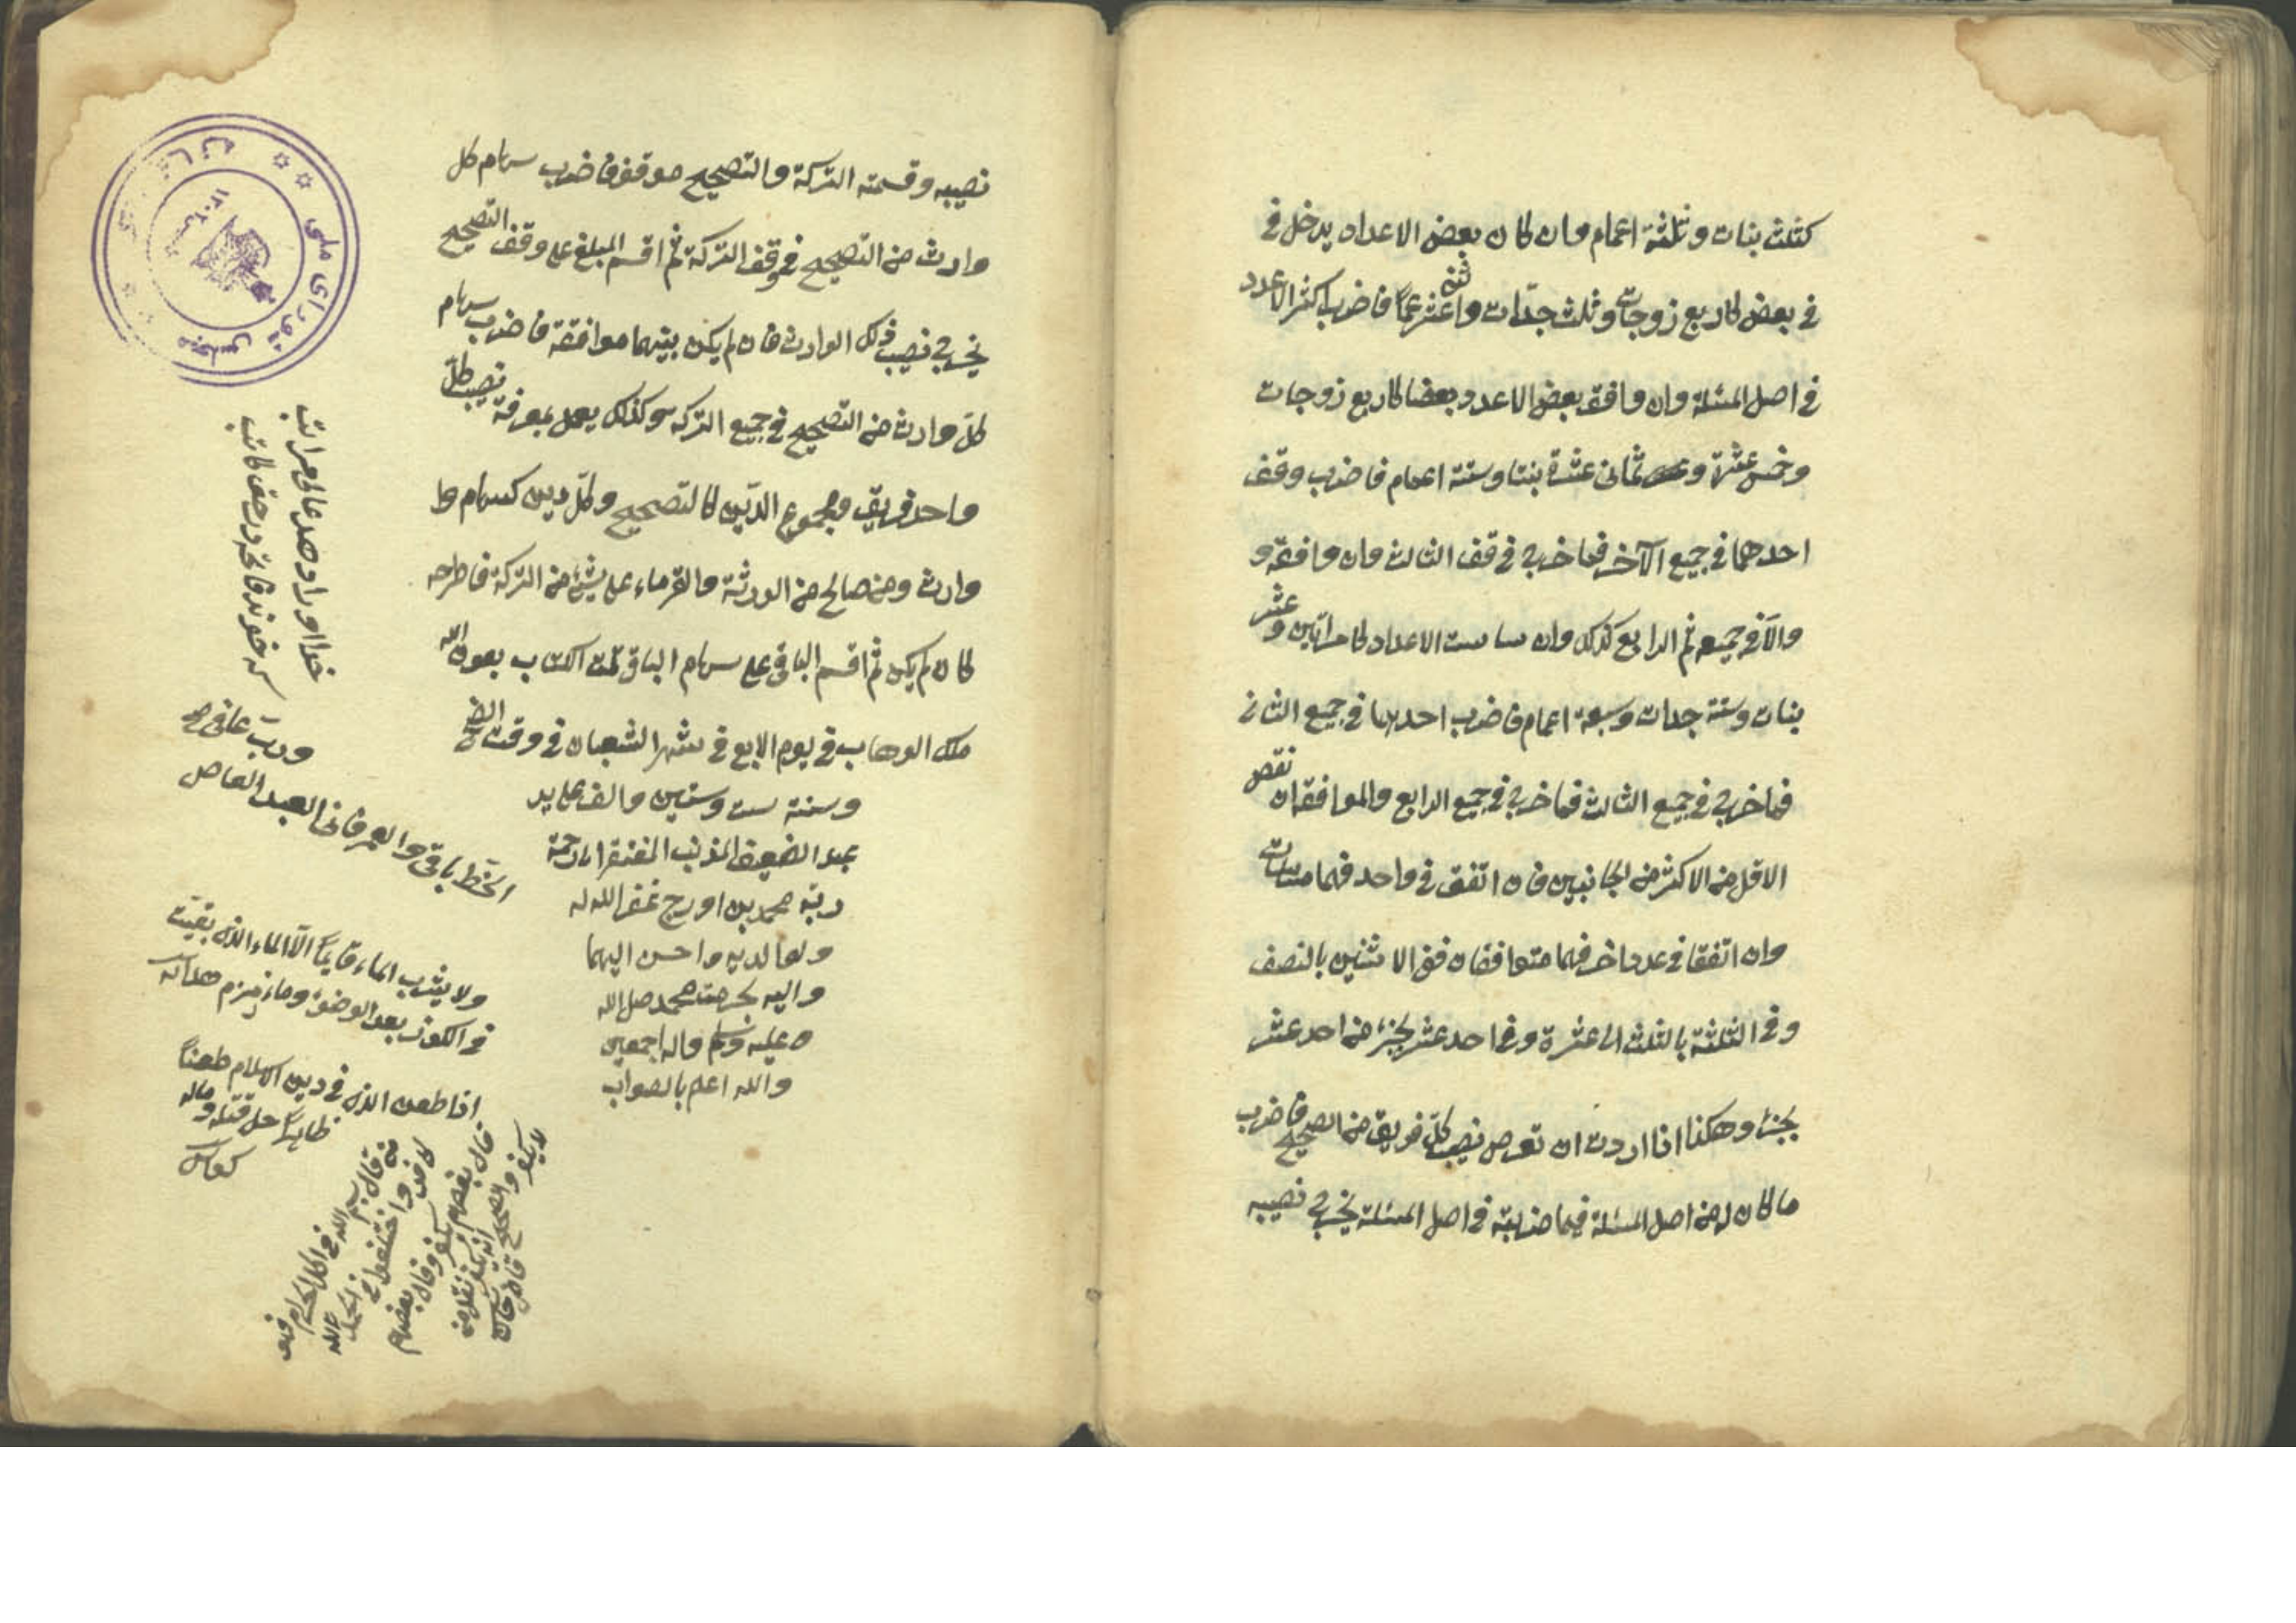 كثلث بنات وثلثة اعمام وان كان بعض الاعداد يدخل في
في بعض كاربع زوجات وثلث جدّات واثنى عشر عمّا فاضرب اكثر الاعدد
في اصل المسئلة وان وافق بعض الاعدد بعضا كاربع زوجات
وخمس عشرة و ثمانى عشرة بنتا وستة اعمام فاضرب وفق
احدهما في جميع الآخر فما خرج في وقف الثالث وان وافقه و
والآ في جميعه ثم الرابع كذلك وان ساست الاعداد كامراتين وعشر
بنات وستة جدات وسبعة اعمام فاضرب احدها في جميع الثانى
فما خرج في جميع الثالث فما خرج في جميع الرابع والموافقة ان نقص
الاقل من الاكثر من الجانبين فان اتفق في واحد فهما متباينات
وان اتفقا في عدد اخر فهما متوافقان ففى الاثنين بالنصف
وفي الثلثة بالثلث الى عشرة وفي احد عشر بجزء من احد عشر
بجزء وهكذا اذا اردت ان تعرف نصيب كلّ فريق من الصحيح فاضرب
ما كان له من اصل المسئلة فيما ضربته في اصل المسئلة يخرج نصيبه
نصيبه وقسمته التركة والتصحيح موقفة فاضرب سهام كل
وارث من التصحيح في وقف التركة ثم اقسم المبلغ على وقف التصحيح
يخرج نصيب ذلك الوارث فان لم يكن بينهما موافقة فاضرب سهام
كلّ وارث من التصحيح في جميع التركة وكذلك يعمل بمعرفة نصيب كلّ
واحد فريق ومجموع الدّين كالتصحيح وكلّ دين كسهام وا
وارث ومن صالح من الورثة والغرماء على شئ من التركة فاطرحه
كان لم يكن ثم اقسم الباقى على سهام الباقى تمت الكتاب بعون الله
ملك الوهاب في يوم الابع في شهر الشعبان في وقت الضحى
وسنة ست وستين والف على يد
عبد الضعيف المذنب المفتقر الى رحمة
ربّه محمد بن اورج غفر الله له
ولوالديه واحسن اليهما
واليه بحرمت محمد صلى الله
عليه وسلم واله اجمعين
والله اعلم بالصواب
مجلس شوراى ملى
خدا اورا دهد عالى مراتب
كه خواند فاتحه در حق كاتب
الخط باقى والعمر فانى العبد العاصى
ولا يشرب الماء قايمًا الّا الماء الذى بقيت
في الكوز بعد الوضوء وماء زمزم هداية
اذا طعن الذى في دين الاسلام طعنًا
ظاهرًا حل قتله وماله
من قال بسم الله في اكل الحرام
واختلفوا في الحمد لله
قال بعضهم يكفر وقال بعضهم
لا يكفر والصحيح انه